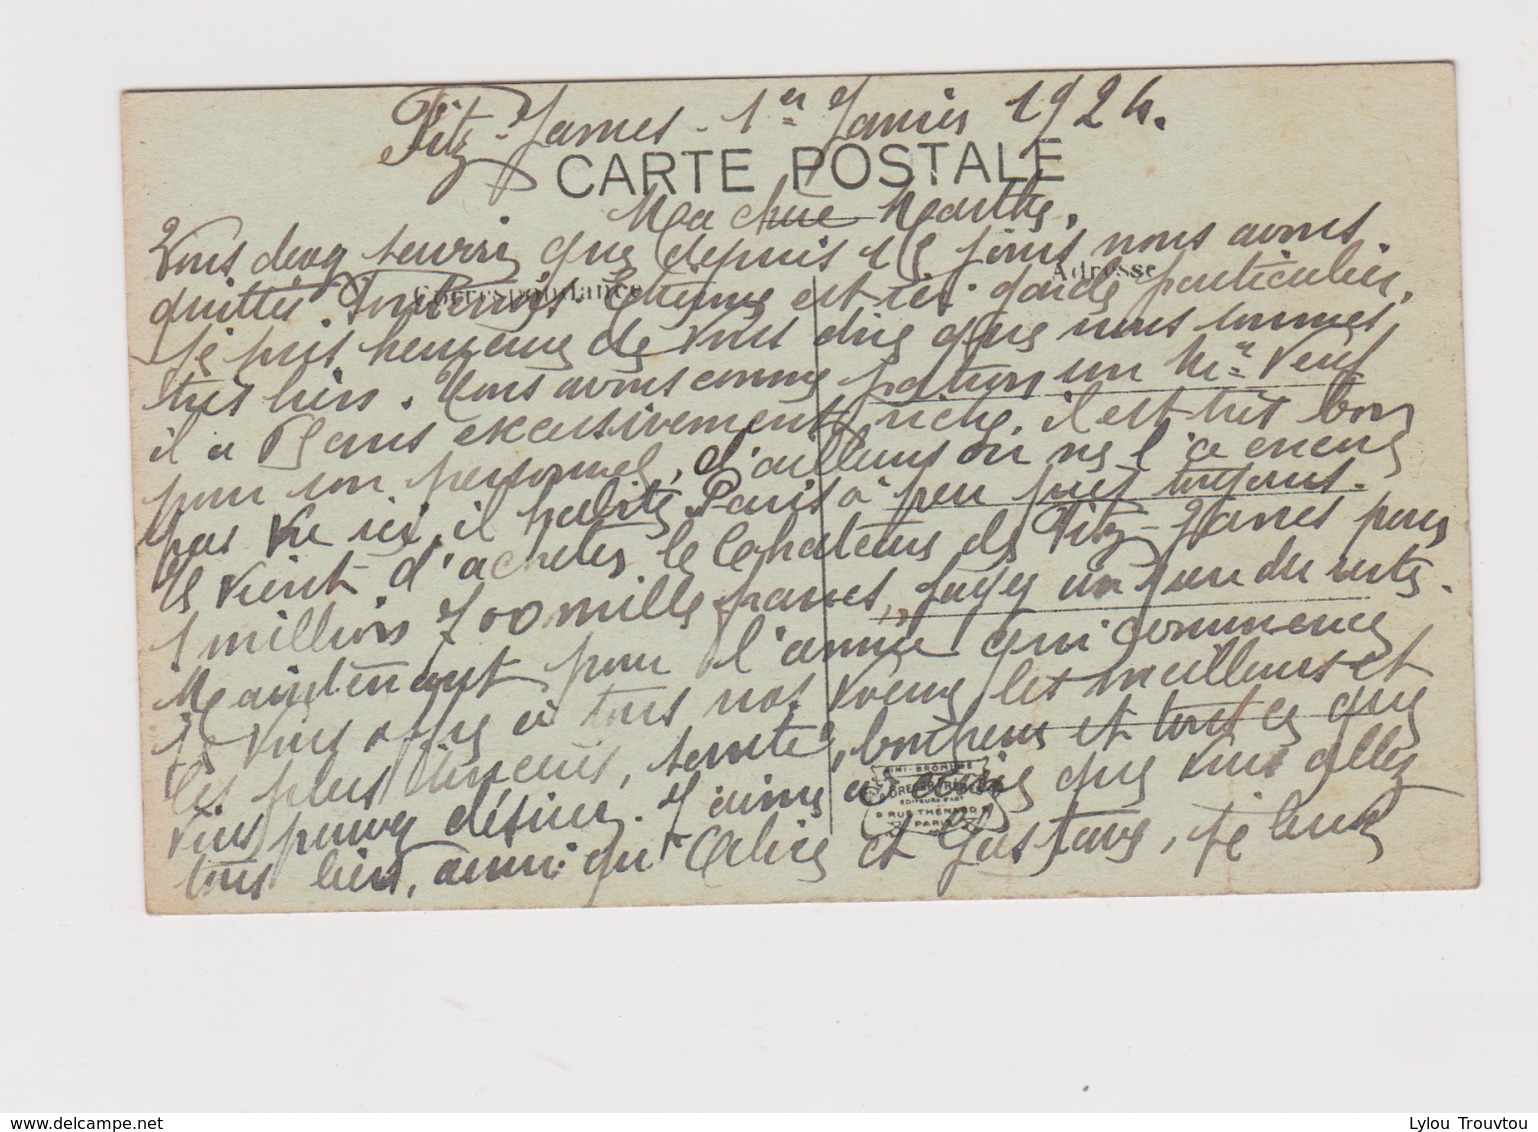 Fitz-James - 1er Janvier 1924.
CARTE POSTALE
Ma chère Marthe,
Vous devez savoir que depuis 15 jours nous avons
Correspondance
Adresse
quittés Etienne est ici garde particulier,
je suis heureuse de vous dire que nous sommes
très bien. Nous avons comme patron un Mr Veuf
il a Paris excessivement riche, il est très bon
pour son personnel, d'ailleurs on ne l'a encore
pas vu ici, il habite Paris à peu près toujours.
Il vient d'acheter le Château de Fitz-James pour
1 million 700 mille francs, jugez un peu du reste.
Maintenant pour l'année qui commence
je vous offre à tous nos vœux les meilleurs et
les plus sincères, santé, bonheur et tout ce que
vous pouvez désirer. J'aime à croire que vous allez
tous bien, ainsi qu' Alice et Gustave, je leur
MINI-BROMURE
DREGER FRÈRES
EDITEURS D'ART
9 RUE THÉNARD
PARIS
Lylou Trouvtou
www.delcampe.net